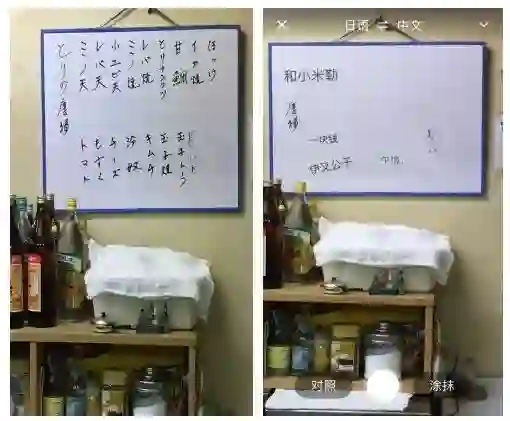 ほっけ
イカ焼
甘鯛
とりナンコツ
レバ焼
ミノ焼
小エビ天
レバ天
ミノ天
とりの唐揚
玉子トーフ
玉子焼
キムチ
チーズ
もずく
トマト
日语 ⇌ 中文
和小米勒
唐揚
一块钱
伊又公子
对照
涂抹